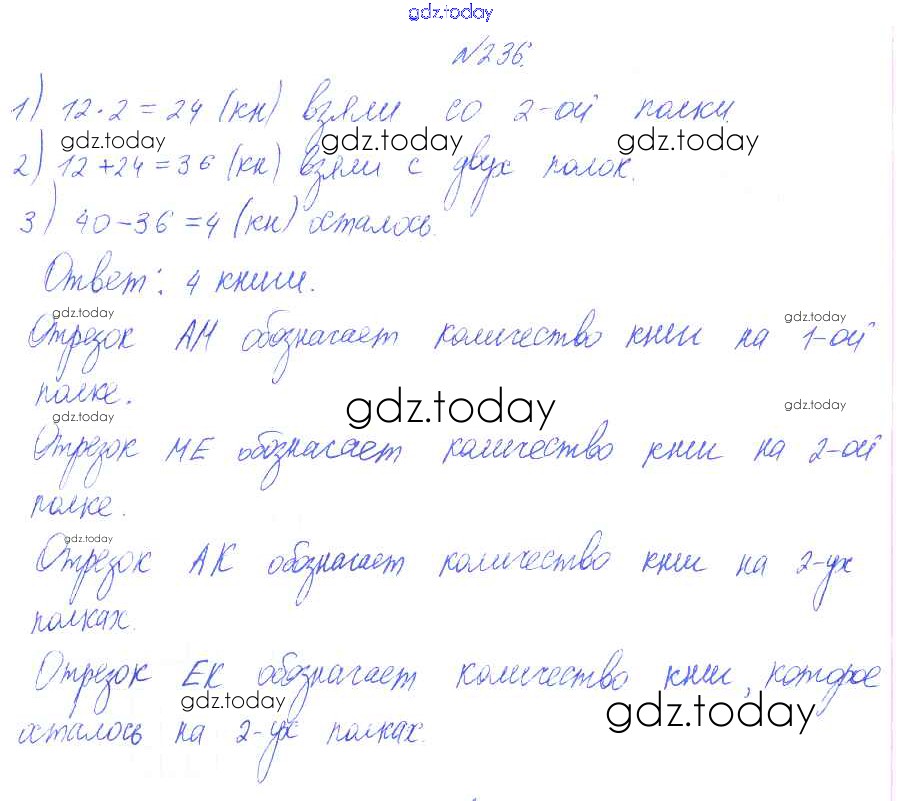 gdz.today
№236.
1) 12·2=24 (кн) взяли со 2-ой полки.
gdz.today gdz.today gdz.today
2) 12+24=36 (кн) взяли с двух полок.
3) 40-36=4 (кн) осталось.
Ответ: 4 книги.
gdz.today gdz.today
Отрезок АМ обозначает количество книг на 1-ой
полке.
gdz.today gdz.today gdz.today
Отрезок МЕ обозначает количество книг на 2-ой
полке.
gdz.today
Отрезок АК обозначает количество книг на 2-ух
полках.
Отрезок ЕК обозначает количество книг, которое
gdz.today gdz.today
осталось на 2-ух полках.